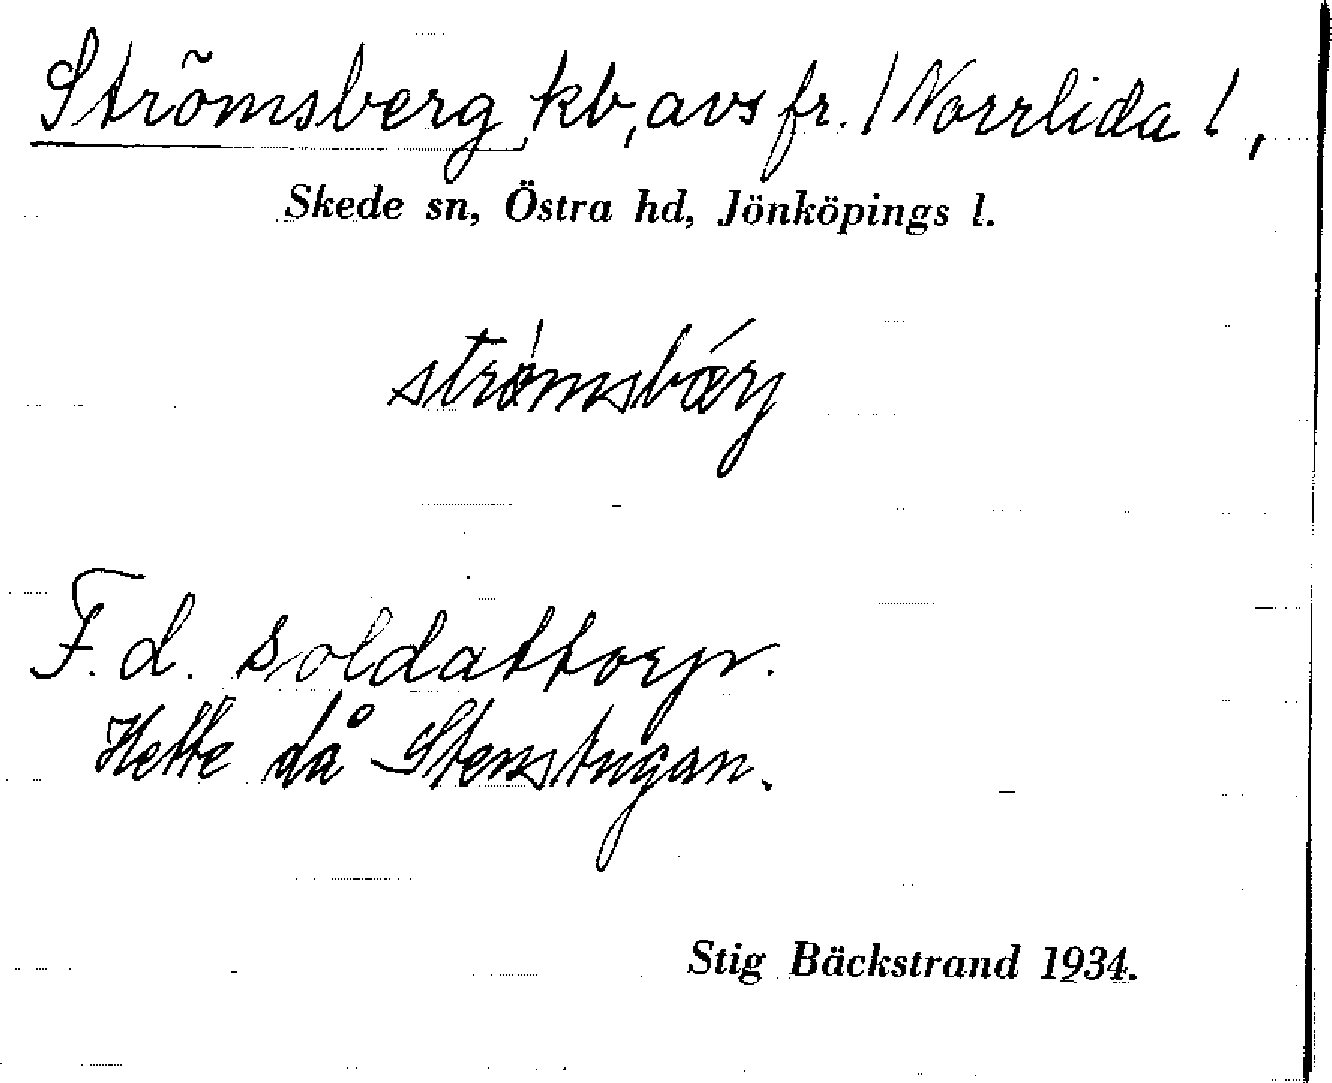 Strömsberg, kb, avs fr. / Norrlida /,
Skede sn, Östra hd, Jönköpings l.
strömsbærj
F.d. soldattorp.
Hette då Stenstugan.
Stig Bäckstrand 1934.